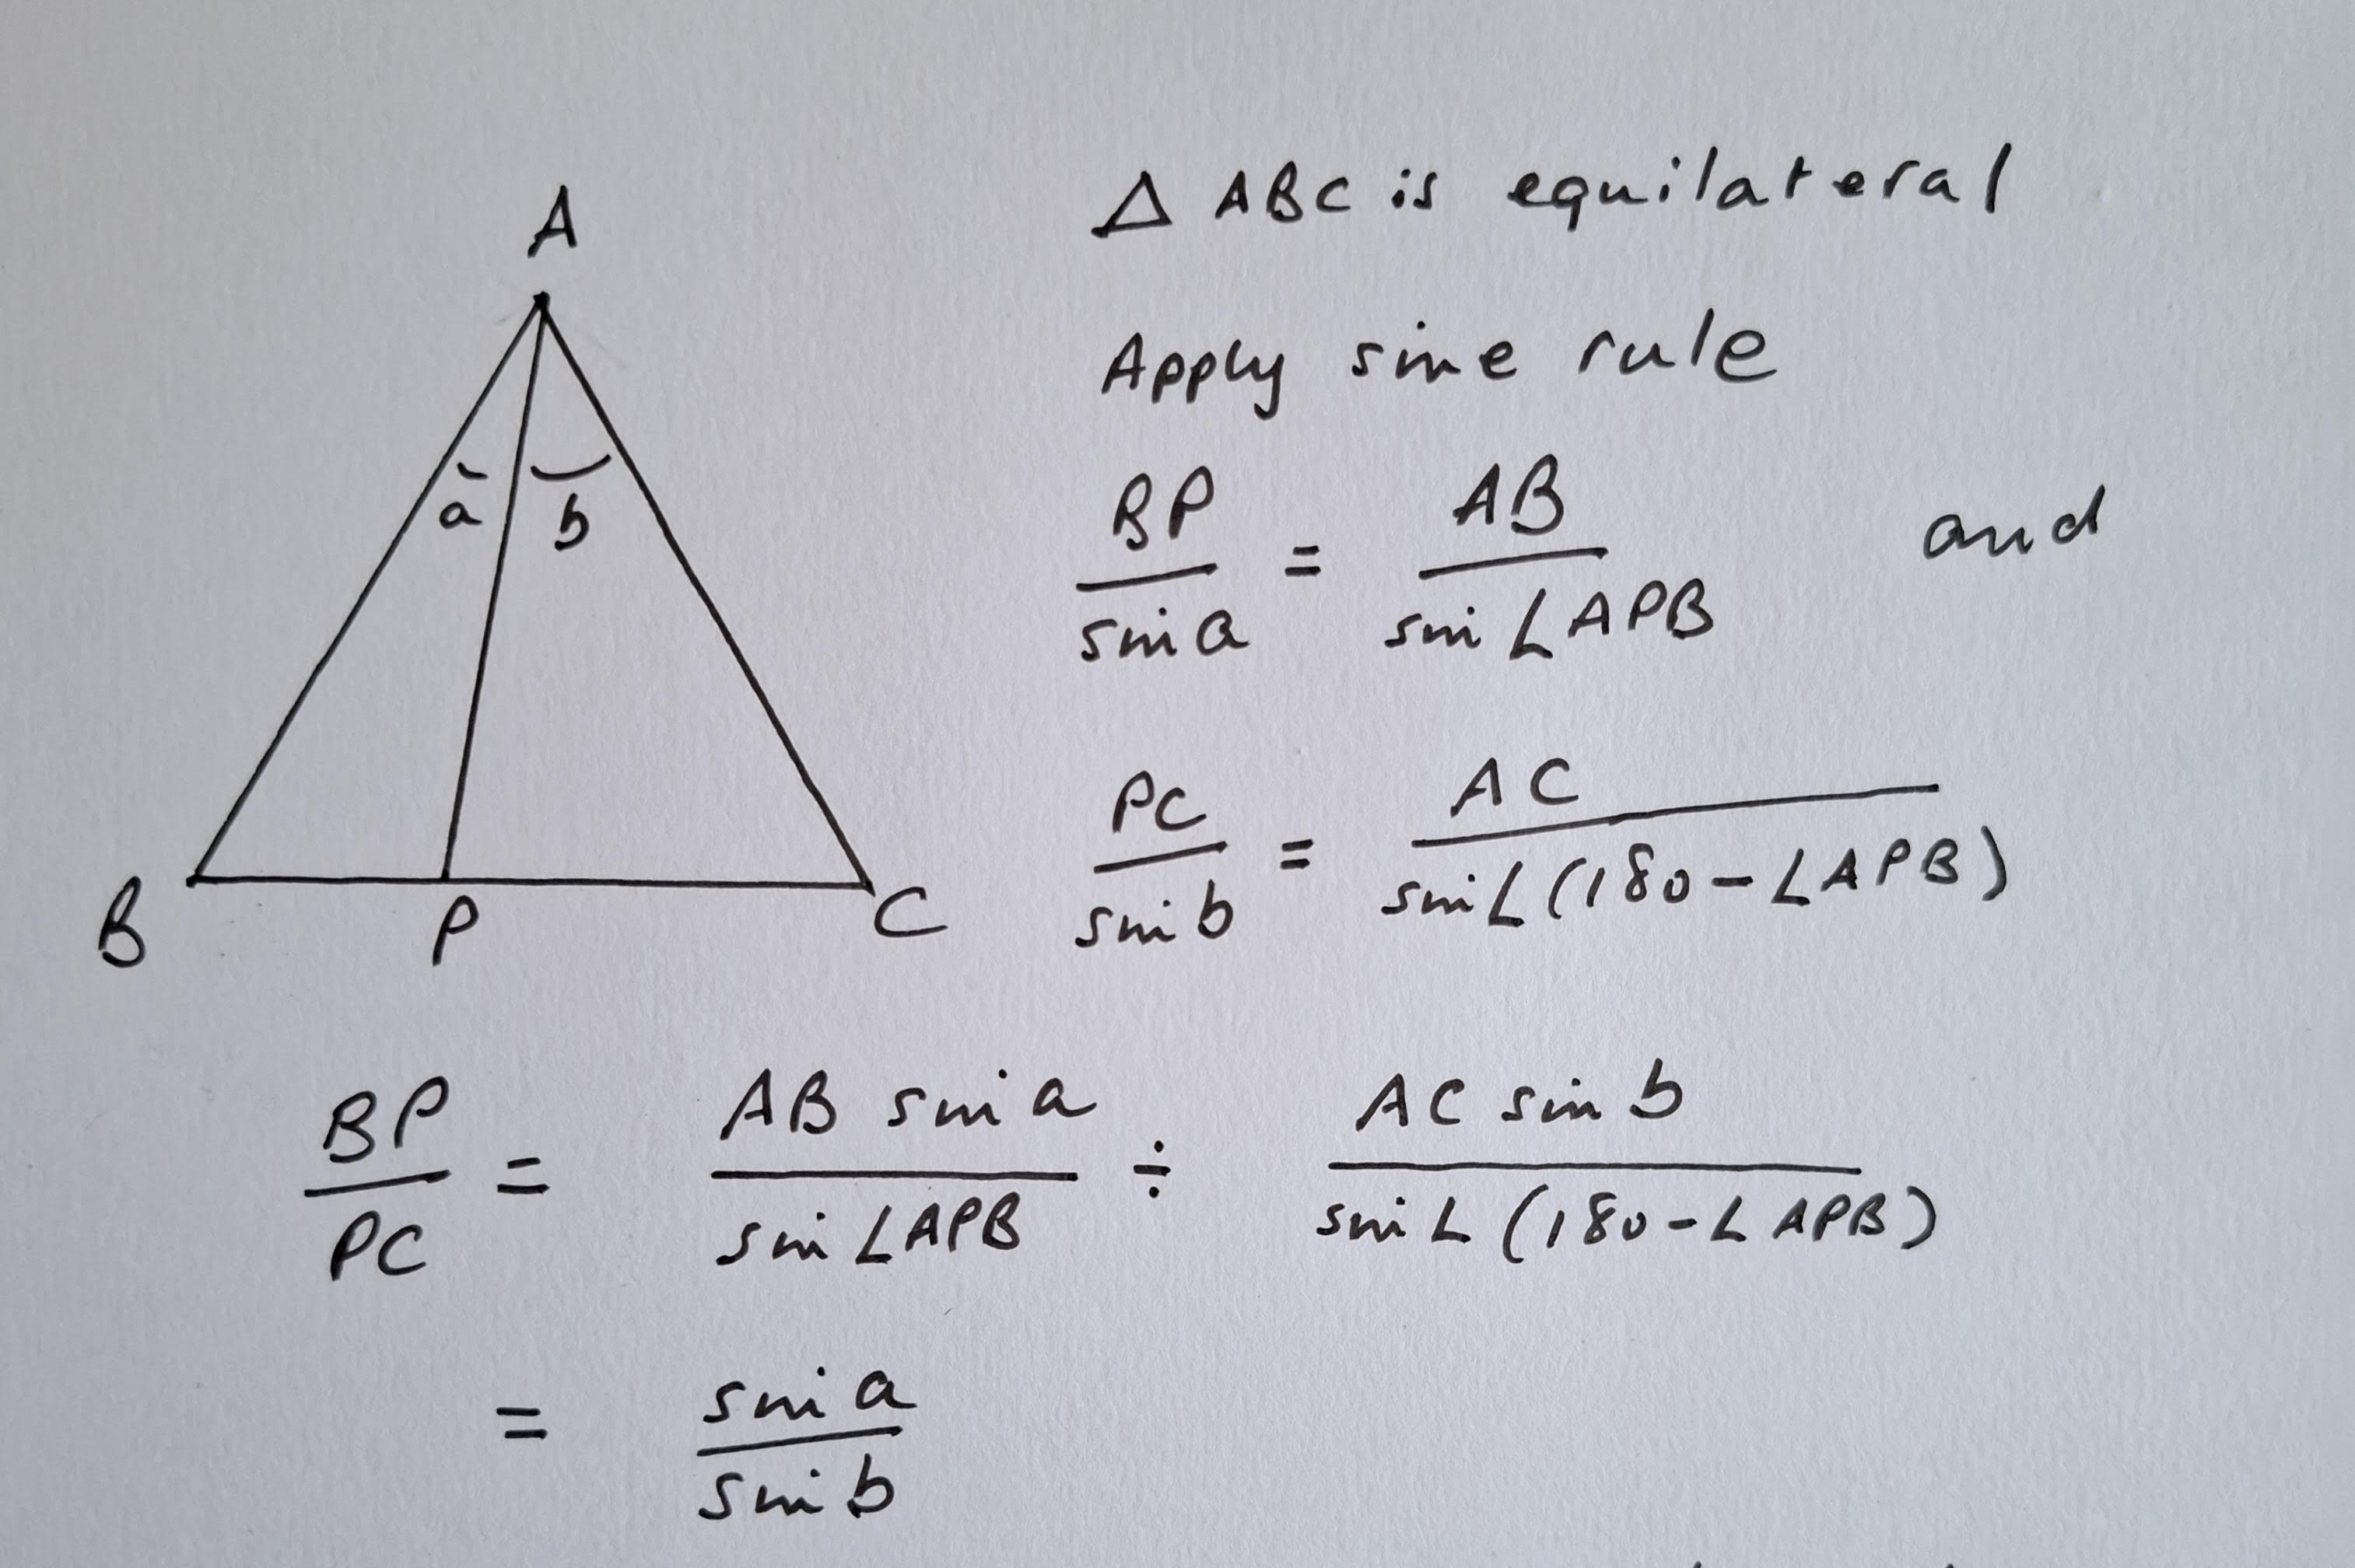 A
a b
B P C
△ ABC is equilateral
Apply sine rule
BP/sin a = AB/sin ∠APB and
PC/sin b = AC/sin∠(180-∠APB)
BP/PC = AB sin a/sin ∠APB ÷ AC sin b/sin∠(180-∠APB)
= sin a/sin b